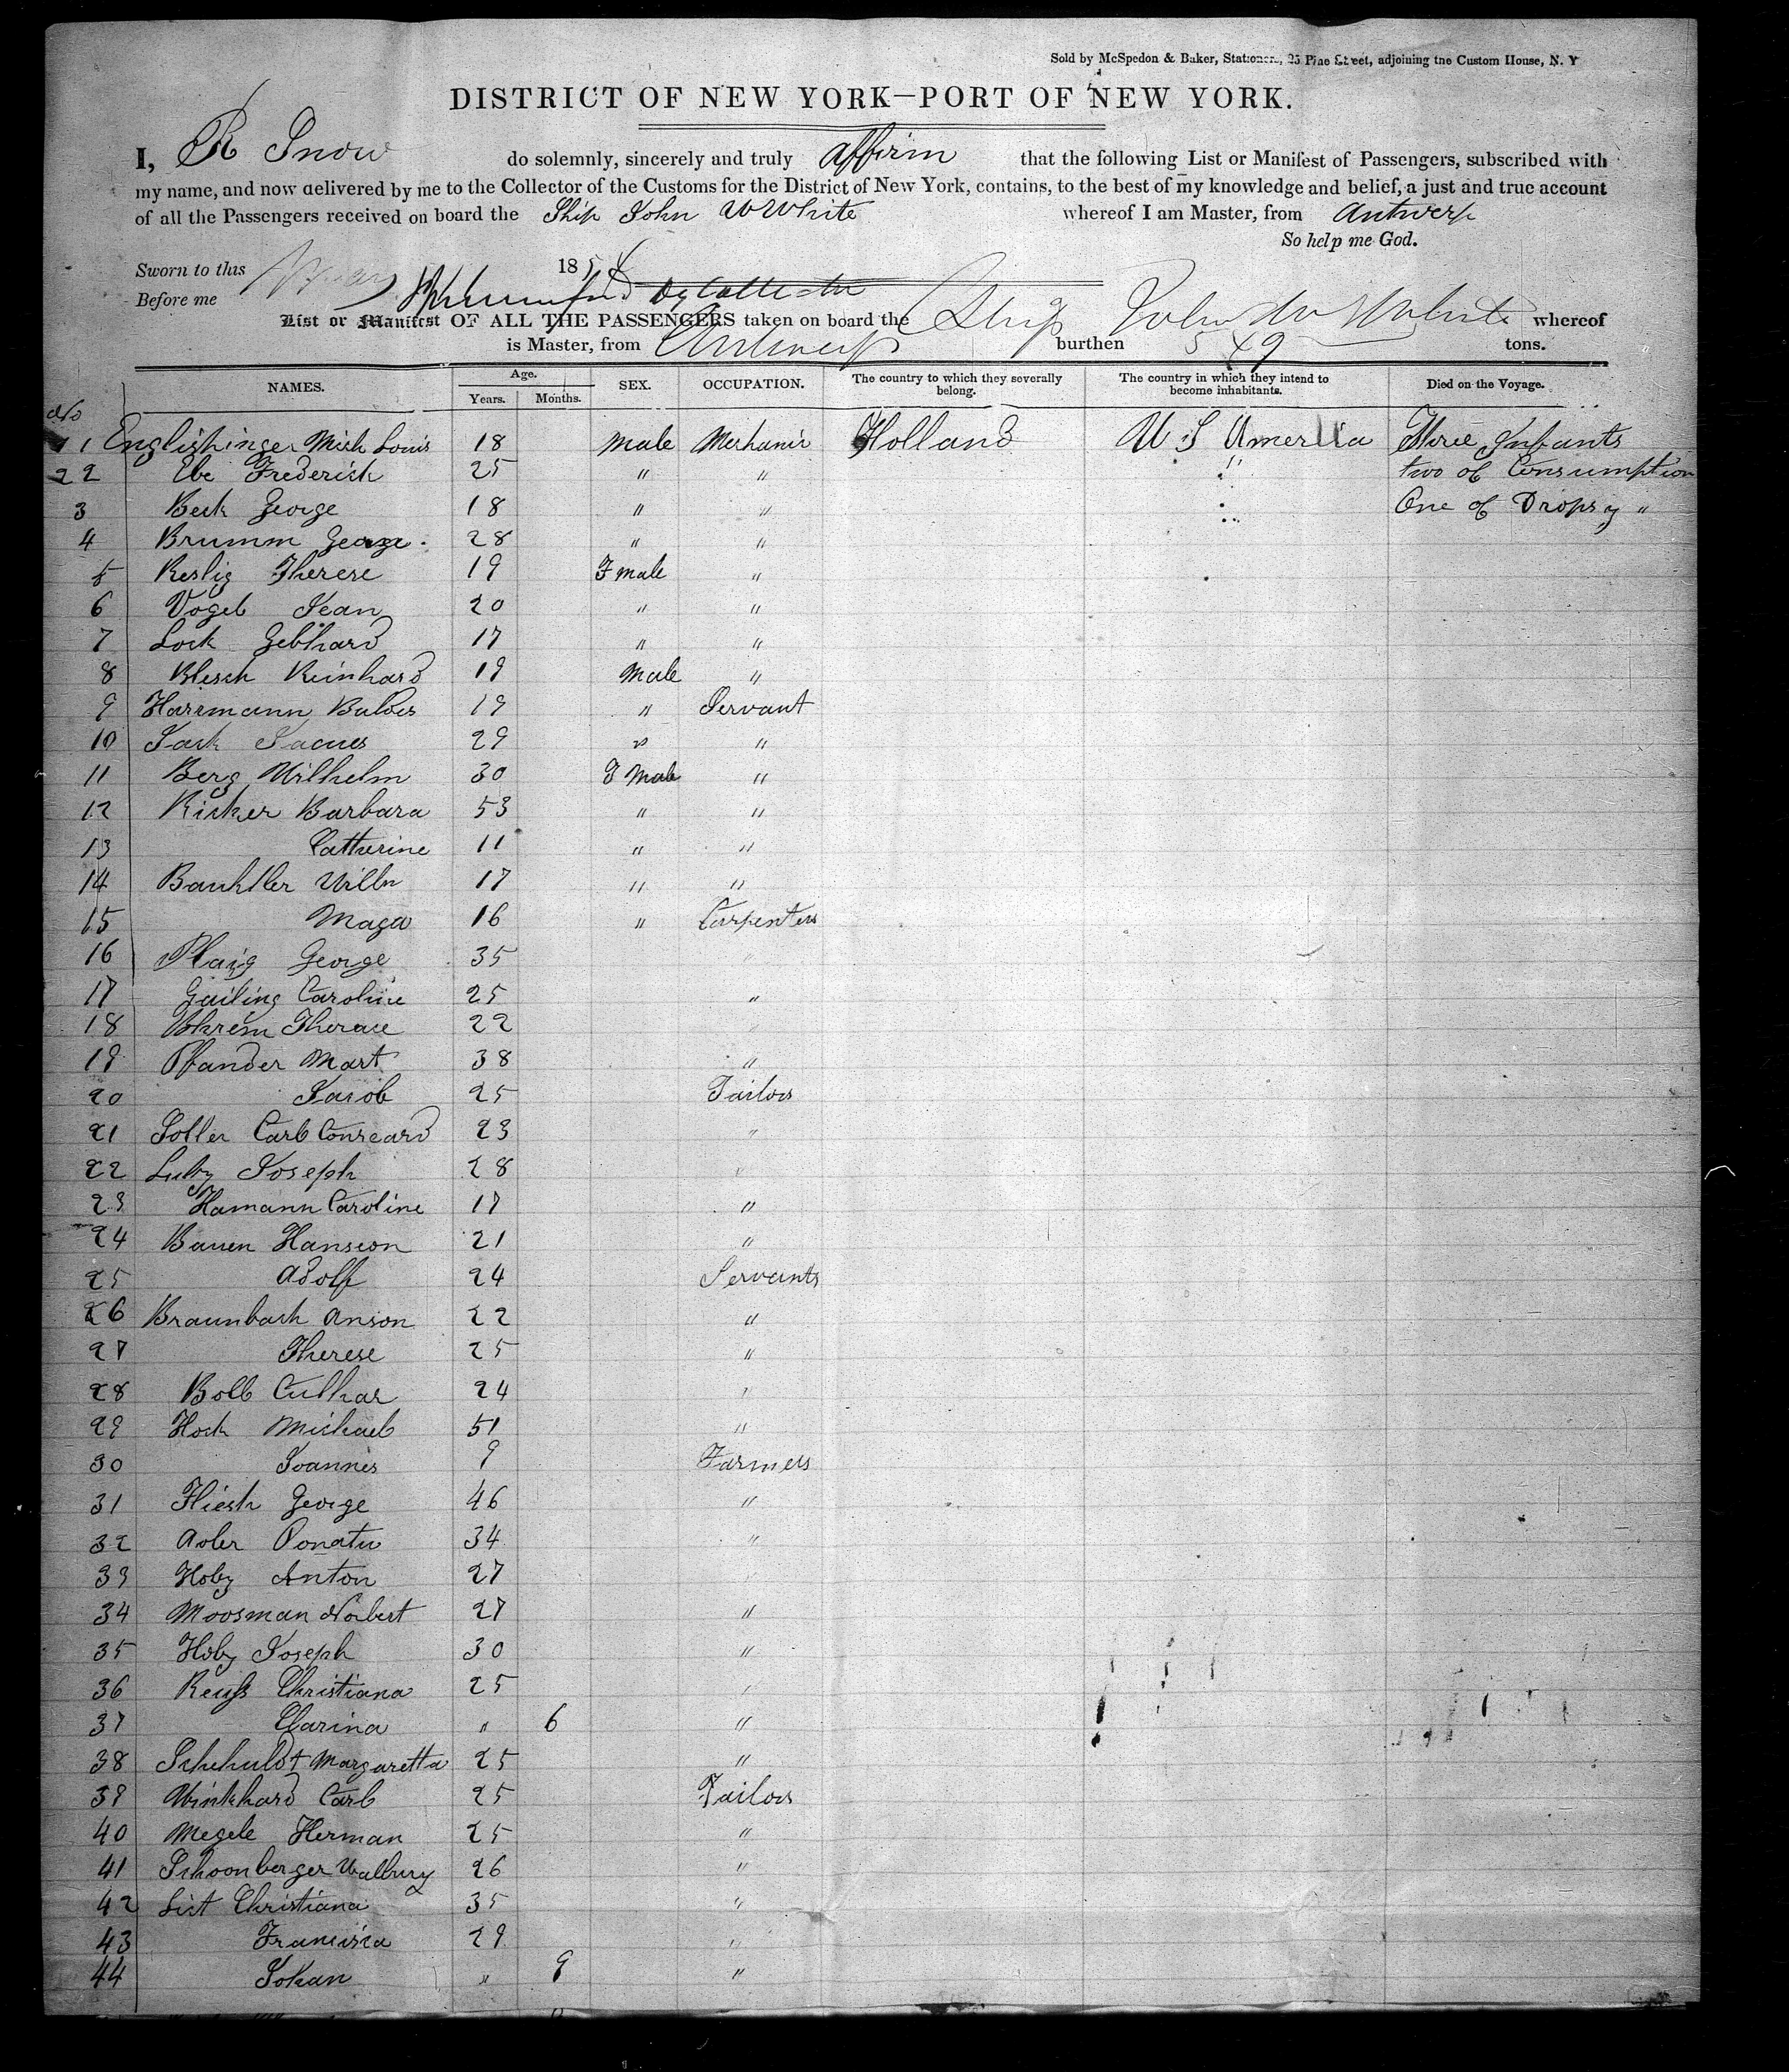 Sold by McSpedon & Baker, Stationers, 25 Pine Street, adjoining the Custom House, N. Y
DISTRICT OF NEW YORK—PORT OF NEW YORK.
I, R Snow do solemnly, sincerely and truly affirm that the following List or Manifest of Passengers, subscribed with
my name, and now delivered by me to the Collector of the Customs for the District of New York, contains, to the best of my knowledge and belief, a just and true account
of all the Passengers received on board the Ship John W White whereof I am Master, from Antwerp
So help me God.
Sworn to this 1854
Before me
List or Manifest OF ALL THE PASSENGERS taken on board the Ship John W White whereof
is Master, from Antwerp burthen 549 tons.
NAMES. Age. Years. Months. SEX. OCCUPATION. The country to which they severally belong. The country in which they intend to become inhabitants. Died on the Voyage.
No
1 Englishinger Mich Louis 18 Male Mechanic Holland U S America Three Infants
2 Ebe Frederick 25 " " " two of Consumption
3 Beck George 18 " " One of Dropsy "
4 Brumm George 28 " "
5 Keslig Therese 19 F male "
6 Vogel Jean 20 " "
7 Lock Gebhard 17 " "
8 Blesch Reinhard 19 Male "
9 Harrmann 19 " Servant
10 Jack Jacues 29 " "
11 Berg Wilhelm 30 F Male "
12 Richer Barbara 53 " "
13 Catherine 11 " "
14 17 " "
15 Maga 16 " Carpenters
16 Plaig George 35 "
17 Gailing Caroline 25 "
18 22 "
19 Pfander Mart 38 "
20 Jacob 25 Tailors
21 Soller Carl Conrard 23 "
22 Luby Joseph 28 "
23 Hamann Caroline 17 "
24 Bauen Hanseon 21 "
25 Adolf 24 Servants
26 Braunbach Anson 22 "
27 Therese 25 "
28 Boll 24 "
29 Hock Michael 51 "
30 Joannes 9 Farmers
31 Fliesh George 46 "
32 Adler Donatu 34 "
33 Hoby Anton 27
34 Moosman Norbert 27 "
35 Hoby Joseph 30 "
36 Reuss Christiana 25 "
37 Clarina " 6 "
38 Schehuldt Margaretta 25 "
39 Winkhard Carl 25 Tailors
40 Megele Herman 25 "
41 Schoonberger Walburg 26 "
42 List Christiana 35 "
43 Francisca 29 "
44 Johan " 9 "